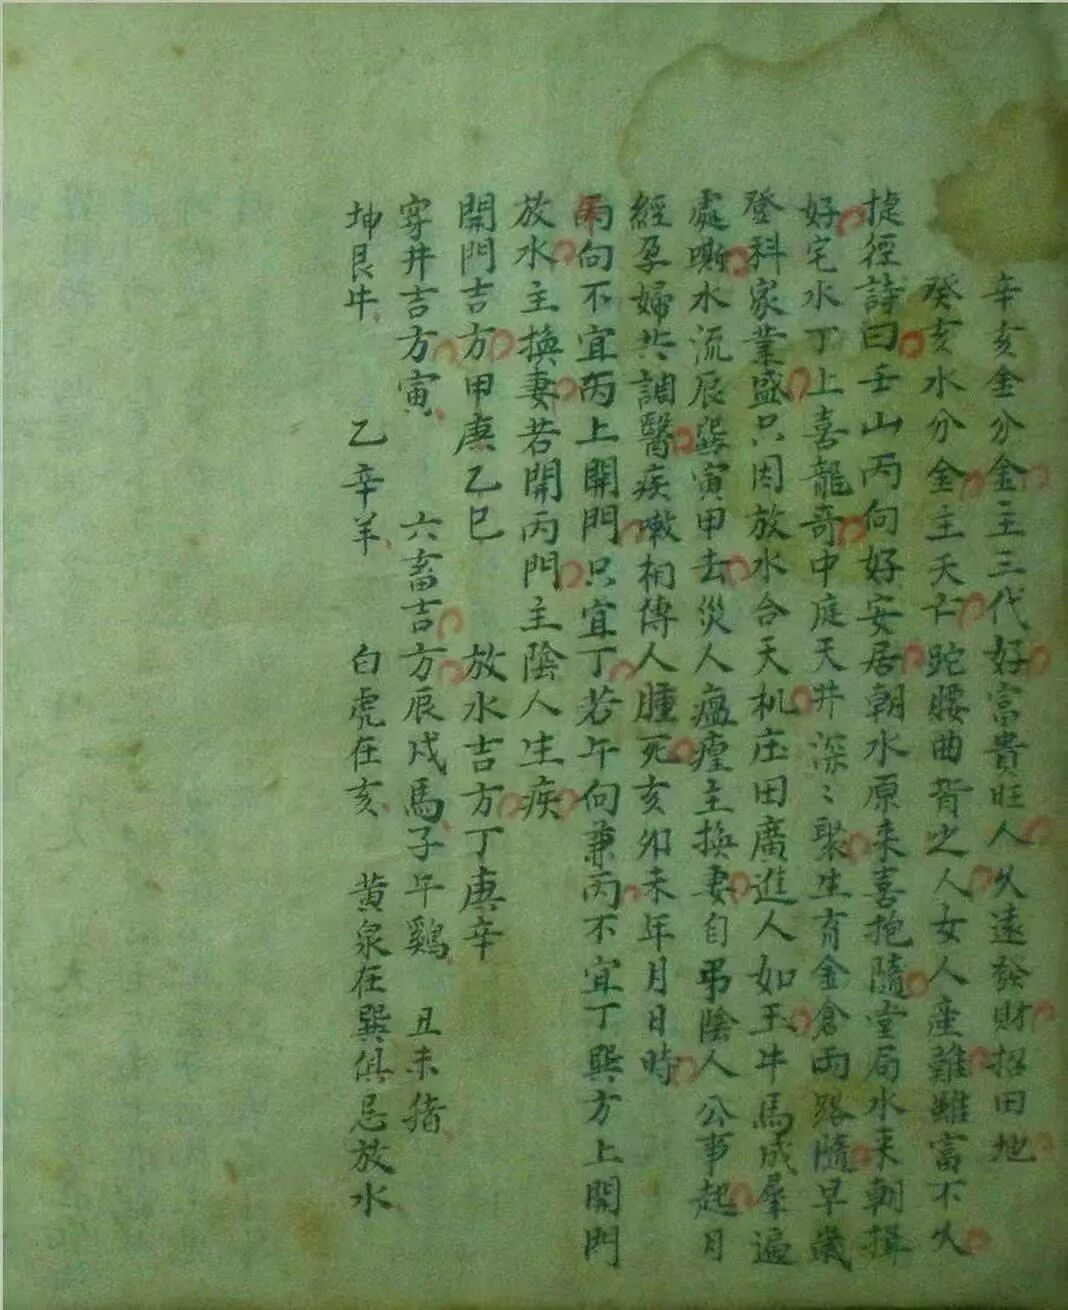 辛亥金分金主三代好富貴旺人久遠發財招田地
癸亥水分金主夭亡跎腰曲背之人女人産難雖富不久
捷徑詩曰壬山丙向好安居朝水原来喜抱隨堂局水来朝揖
好宅水丁上喜龍奇中庭天井深〻聚生育金倉両路隨早歲
登科家業盛只因放水合天机庄田廣進人如玉牛馬成犀遍
處嘶水流辰巽寅甲去災人瘟瘽主換妻自吊陰人公事起月
經孕婦共調醫疾嗽相傳人腫死亥卯未年月日時
丙向不宜丙上開門只宜丁若午向兼丙不宜丁巽方上開門
放水主換妻若開丙門主陰人生疾
開門吉方甲庚乙巳 放水吉方丁庚辛
穿井吉方寅 六畜吉方辰戍馬子午鷄 丑未猪
坤艮牛 乙辛羊 白虎在亥 黄泉在巽俱忌放水